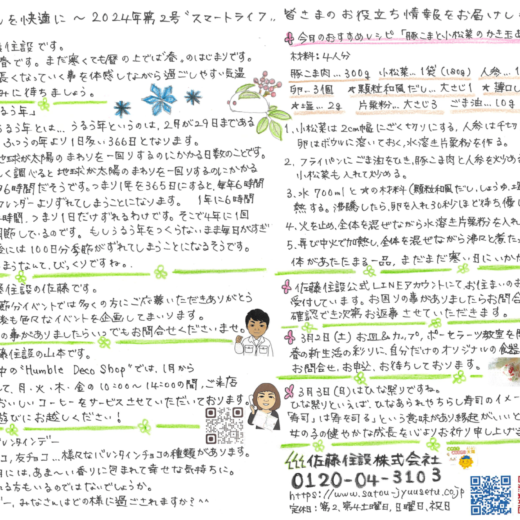 しを快適に ～ 2024年第2号 "スマートライフ..
住設です。
春です。まだ寒くても暦の上では"春"のはじまりです。
長くなっていく事を感じながら過ごしやすい気温
みに待ちましょう。
うるう年」
るう年とは… うるう年というのは、2月が29日まである
ふつうの年より1日多い366日となります。
地球が太陽のまわりを一回りするのにかかる日数のことです。
しく調べると地球が太陽のまわりを一回りするのにかかる
6時間だそうです。つまり1年を365日にすると、毎年6時間
カレンダーよりずれてしまうことになります。 1年に6時間
時間、つまり1日だけずれるわけです。そこで4年に1回
節しているのです。もしうるう年をつくらないまま毎日がすぎ
には100日分季節がずれてしまうことになるそうです。
まうなんて、びっくりですね。
住設の佐藤です。
節分イベントでは多くの方にご参加いただきありがとう
後も色々なイベントを企画してまいります。
の事がありましたらいつでもお問合せくださいませ。
藤住設の山本です。
中の"Humble Deco Shop"では、1月から
して、月・火・木・金の10:00～14:00の間、ご来店
おいしいコーヒーをサービスさせていただいております。
遊びにお越しください！
バレンタインデー
コ、友チョコ…様々なバレンタインチョコの種類があります。
日には、あま～い香りに包まれて幸せな気持ちに。
る方もいるのではないでしょうか。
デー、みなさんはどの様に過ごされますか？^^
皆さまのお役立ち情報をお届けし
今日のおすすめレシピ「豚こまと小松菜のかき玉
材料：4人分
豚こま肉…300g 小松菜…1袋(180g) 人参…1
卵…3個 ★顆粒和風だし…大さじ1 ★薄口し
★塩…2g 片栗粉…大さじ3 ごま油…10g
1. 小松菜は2cm幅にざく切りにする。人参は千切
卵はボウルに溶いておく。水溶き片栗粉を作る。
2. フライパンにごま油をひき、豚こま肉と人参を炒め
小松菜も入れて炒める。
3. 水700mlと★の材料(顆粒和風だし、しょうゆ、塩
熱する。沸騰したら、卵を入れ30秒ほど待ち優し
4. 火を止め、全体を混ぜながら水溶き片栗粉を入れ
5. 再び中火で加熱し、全体を混ぜながら沸々と煮た
体があたたまる一品、まだまだ寒い日にいかが
佐藤住設公式LINEアカウントにてお住まいのお
受付しています。お困りの事がありましたらお問合
確認でき次第お返事させていただきます。
3月2日(土)お皿&カップ、ポーセラーツ教室を開
春の新生活の彩りに、自分だけのオリジナルの食器
お問合せ、お申込、お待ちしております。
3月3日(日)はひな祭りですね。
ひな祭りといえば、ひなあられやちらし寿司のイメー
「寿司」は「寿を司る」という意味があり縁起がいいと
女の子の健やかな成長を心よりお祈り申し上げま
佐藤住設株式会社
0120-04-3103
https://www.satou-jyuusetu.co.jp
定休：第2、第4土曜日、日曜日、祝日